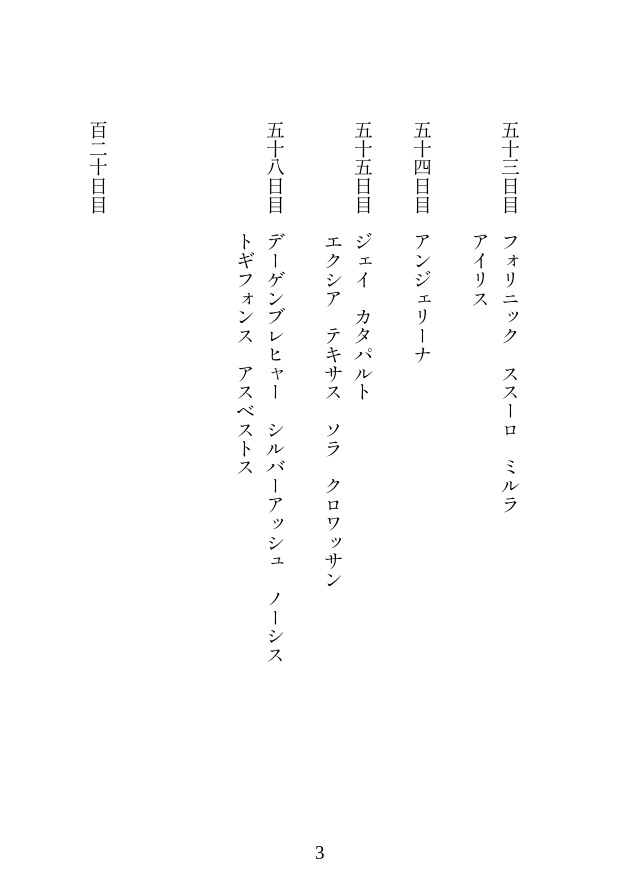 五十三日目　フォリニック　ススーロ　ミルラ
アイリス
五十四日目　アンジェリーナ
五十五日目　ジェイ　カタパルト
エクシア　テキサス　ソラ　クロワッサン
五十八日目　デーゲンブレヒャー　シルバーアッシュ　ノーシス
トギフォンス　アスベストス
百二十日目
3